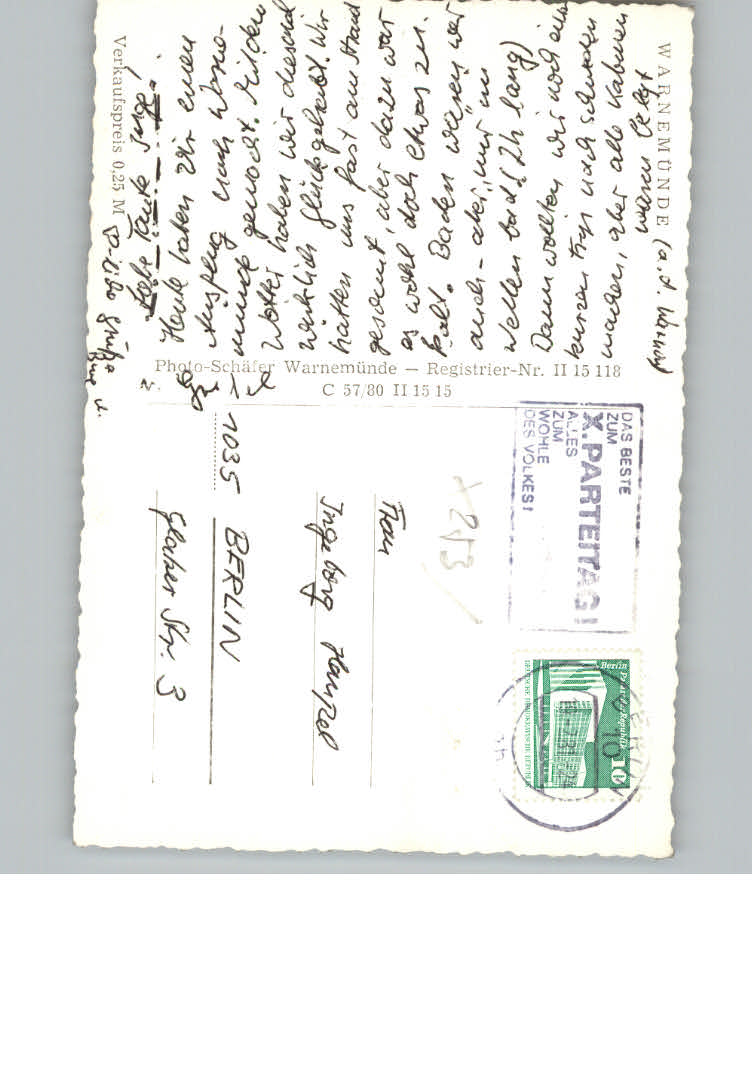 WARNEMÜNDE (a. d. Warnow)
Liebe Tante Inge!
Heute haben wir einen
Ausflug nach Warne-
münde gemacht. Mit dem
Wetter haben wir diesmal
wirklich Glück gehabt. Wir
hatten uns fast am Strand
gesonnt, aber dazu war
es wohl doch etwas zu
kalt. Baden waren wir
auch – aber nur im
Wellenbad (2h lang)
Dann wollten wir noch einen
kurzen Trip nach Schweden
machen, aber alle Kabinen
waren belegt
Verkaufspreis 0,25 M
Liebe Grüße
Photo-Schäfer Warnemünde — Registrier-Nr. II 15 118
C 57/80 II 15 15
DAS BESTE
ZUM
X. PARTEITAG!
ALLES
ZUM
WOHLE
DES VOLKES!
Berlin Palast der Republik
10
DEUTSCHE DEMOKRATISCHE REPUBLIK
BERLIN
10
x 253 /
Frau
Ingeborg
1035 BERLIN
Str. 3